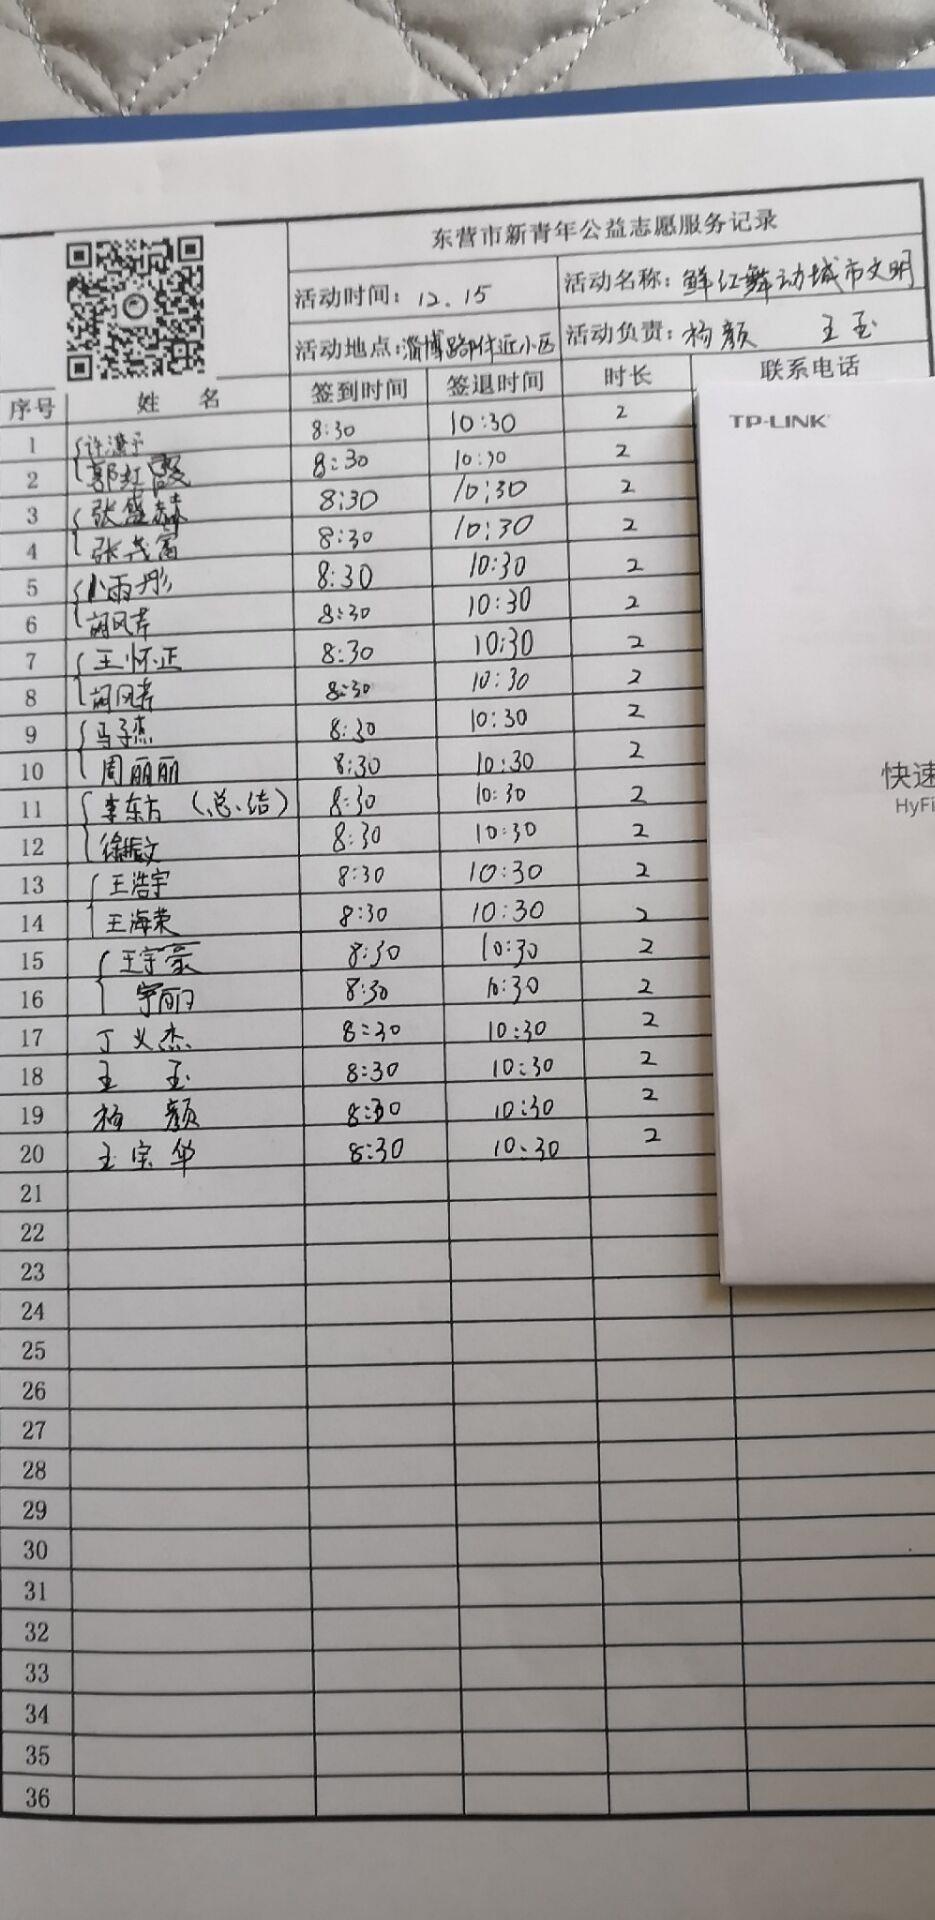 东营市新青年公益志愿服务记录
活动时间：12.15 活动名称：鲜红舞动城市文明
活动地点：淄博路附近小区 活动负责：杨颜 王玉
序号 姓 名 签到时间 签退时间 时长 联系电话
TP-LINK
快速
HyFi
1 许 8:30 10:30 2
2 郭红霞 8:30 10:30 2
3 张盛赫 8:30 10:30 2
4 张茂富 8:30 10:30 2
5 小雨彤 8:30 10:30 2
6 风芹 8:30 10:30 2
7 王怀正 8:30 10:30 2
8 风芹 8:30 10:30 2
9 马子杰 8:30 10:30 2
10 周丽丽 8:30 10:30 2
11 李东方（总结） 8:30 10:30 2
12 徐振文 8:30 10:30 2
13 王浩宇 8:30 10:30 2
14 王海荣 8:30 10:30 2
15 王宇豪 8:30 10:30 2
16 宁丽 8:30 10:30 2
17 丁义杰 8:30 10:30 2
18 王玉 8:30 10:30 2
19 杨颜 8:30 10:30 2
20 王宗华 8:30 10:30 2
21
22
23
24
25
26
27
28
29
30
31
32
33
34
35
36